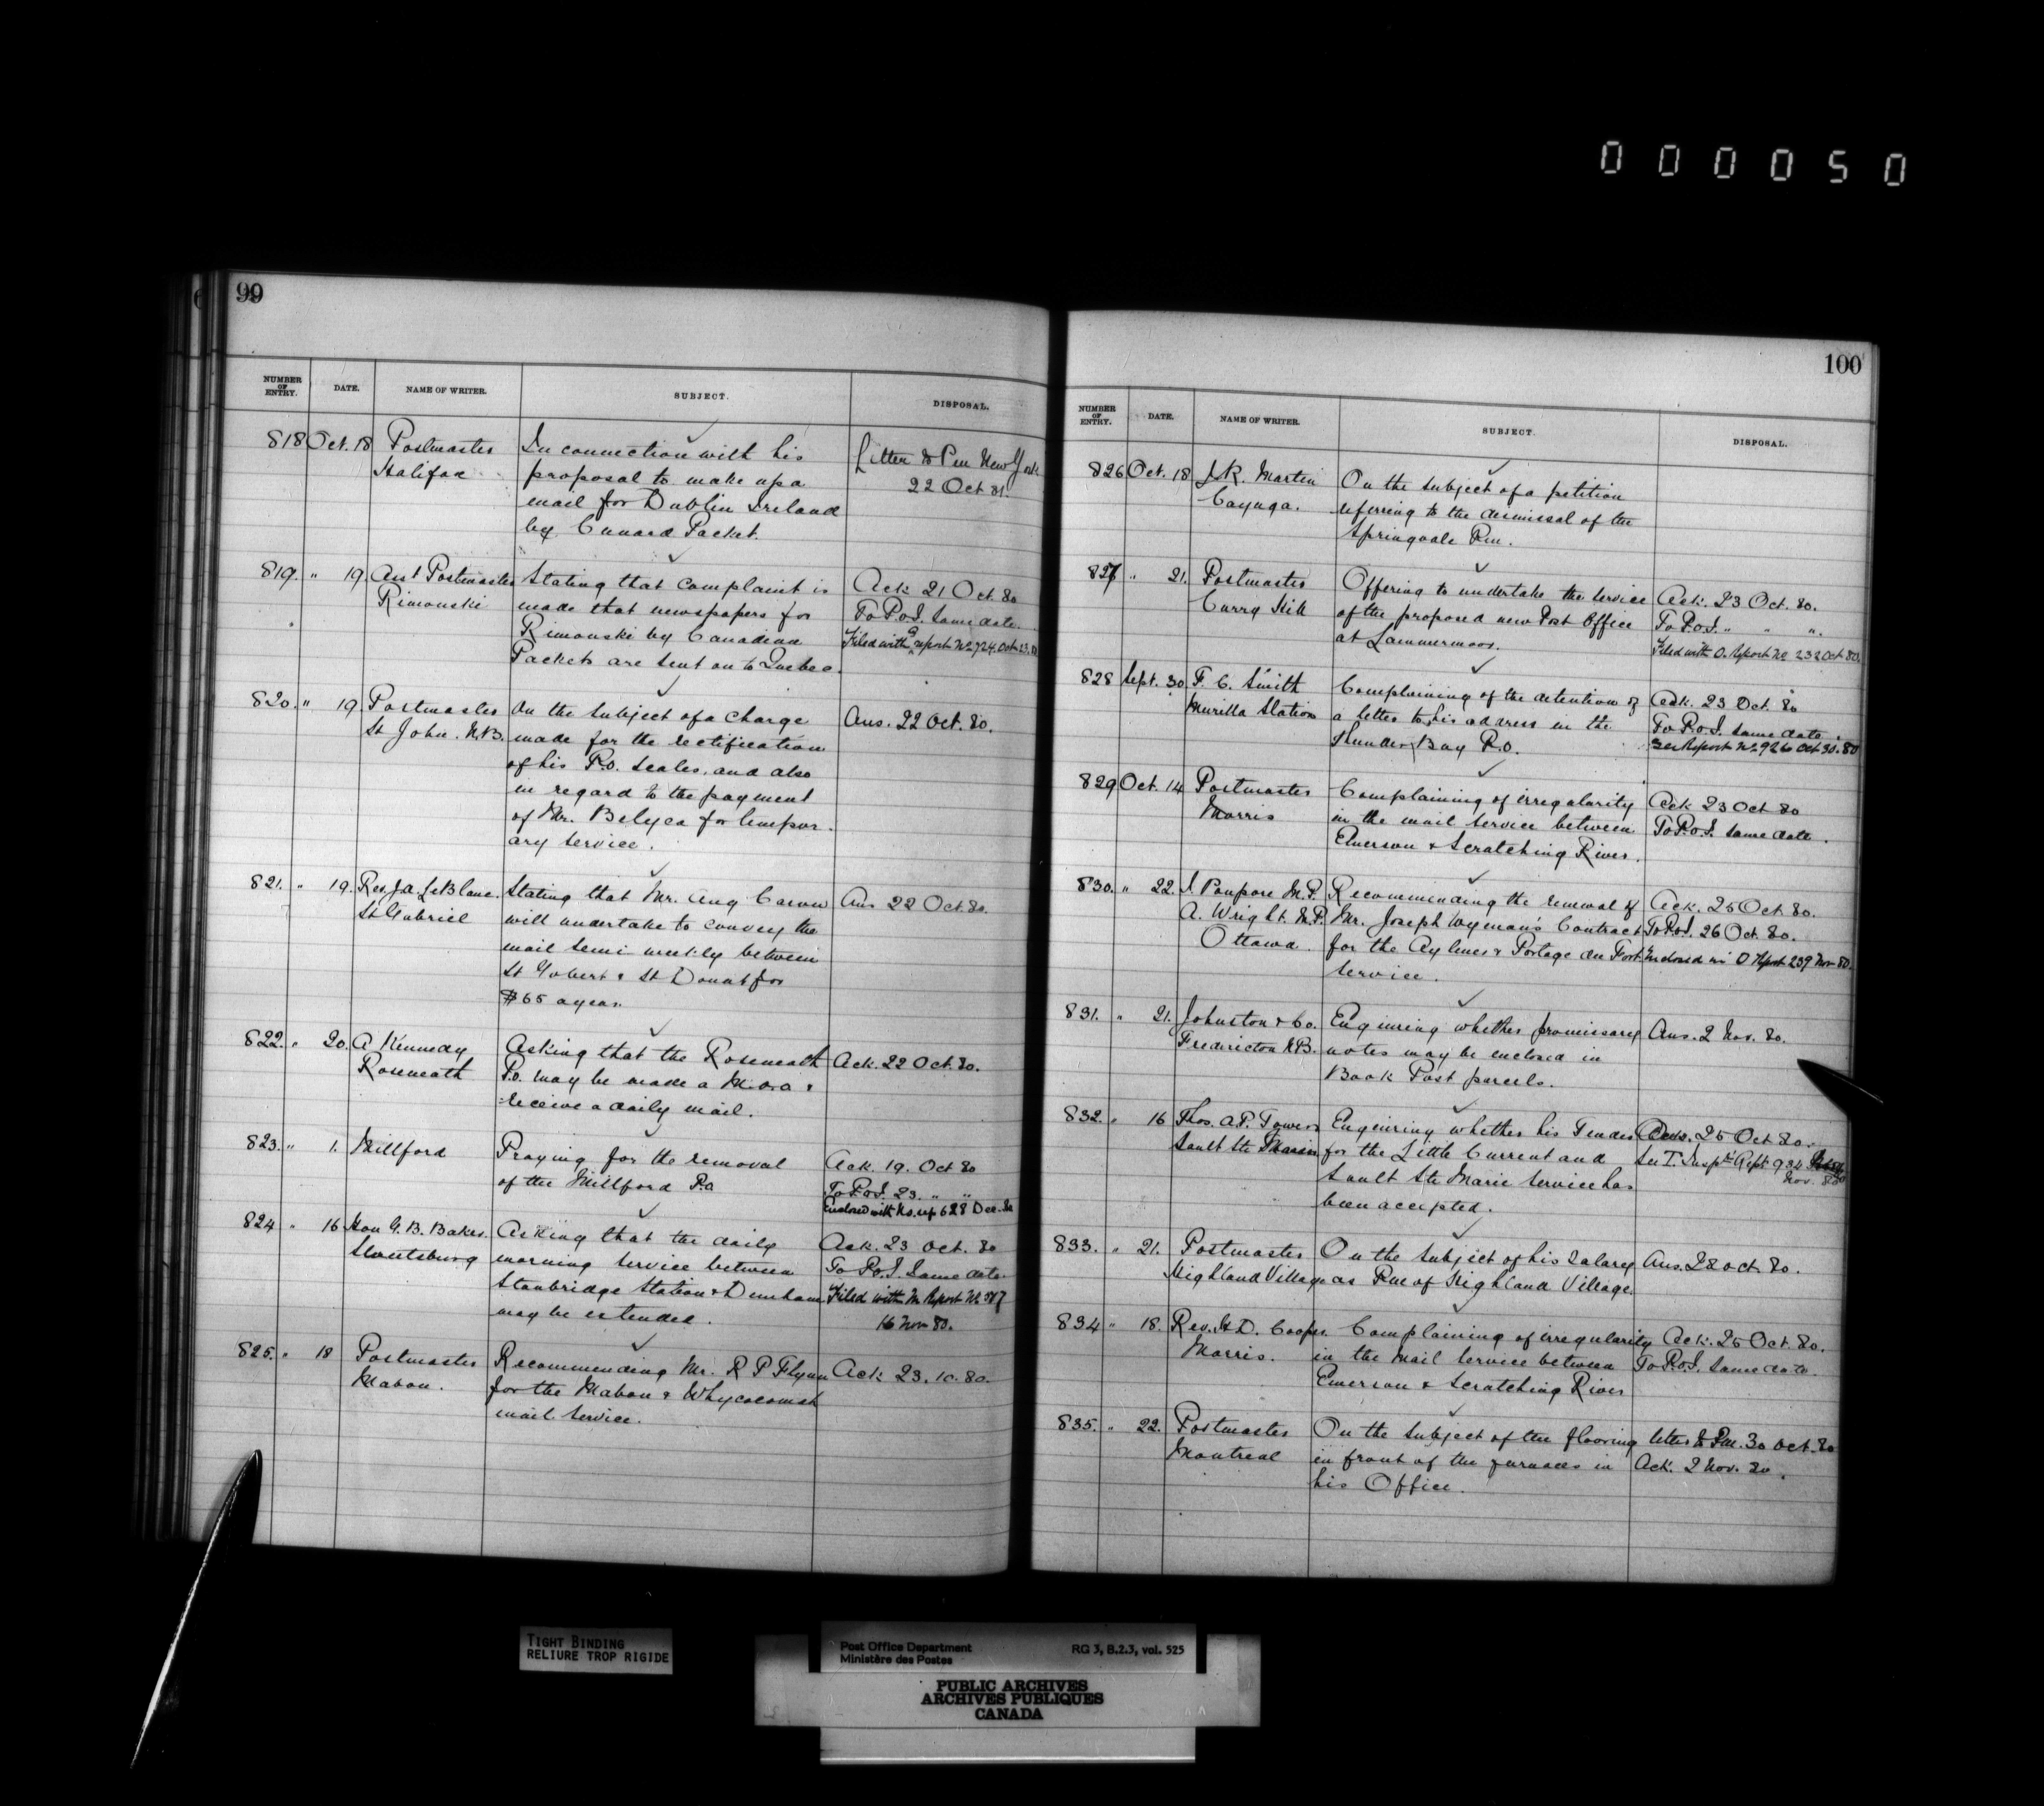 000050
99
NUMBER OF ENTRY. DATE. NAME OF WRITER. SUBJECT. DISPOSAL.
818 Oct. 18 Postmaster In connection with his Letter to Pm New York
Halifax proposal to make up a 22 Oct 81.
mail for Dublin Ireland
by Cunard Packet.
819. " 19. Asst Postmaster Stating that complaint is Ack 21 Oct. 80
Rimouski made that newspapers for To P.O.I. same date.
Rimouski by Canadian Filed with Q report No 724. Oct. 23. 80
Packets are sent on to Quebec.
820. " 19. Postmaster On the subject of a charge Ans. 22 Oct. 80.
St John. N.B. made for the rectification
of his P.O. Scales, and also
in regard to the payment
of Mr. Belyea for tempor-
ary service.
821. " 19. Rev. J.A. LeBlanc. Stating that Mr. Aug Caron Ans 22 Oct. 80.
St Gabriel will undertake to convey the
mail semi weekly between
St Gobert & St Donat for
$65 a year.
822. " 20. A Kennedy Asking that the Roseneath Ack. 22 Oct. 80.
Roseneath P.O. may be made a M.O.O. &
receive a daily mail.
823. " 1. Millford Praying for the removal Ack. 19. Oct 80
of the Millford P.O To P.O.I. 23. " "
Enclosed with No. up 628 Dec. 80
824 " 16 Hon G.B. Baker. Asking that the daily Ack. 23 Oct. 80
Sweetsburg morning service between To P.O.I. Same date.
Stanbridge Station & Dunham Filed with M Report No 387
may be extended. 16 Nov 80.
825. " 18 Postmaster Recommending Mr. R P Flynn Ack 23. 10. 80.
Mabou. for the Mabou & Whycocomah
mail service.
100
NUMBER OF ENTRY. DATE. NAME OF WRITER. SUBJECT. DISPOSAL.
826 Oct. 18 J.R. Martin On the subject of a petition
Cayuga. referring to the dismissal of the
Springvale Pm.
827 " 21. Postmaster Offering to undertake the service Ack. 23 Oct. 80.
Curry Hill of the proposed new Post Office To P.O.I. " " ".
at Lammermoor. Filed with O. Report No 232 Oct 80.
828 Sept. 30 F. C. Smith Complaining of the detention of Ack. 23 Oct. 80
Murilla Station a letter to his address in the To P.O.I. same date.
Thunder Bay P.O. See Report No 926 Oct 30. 80
829 Oct. 14 Postmaster Complaining of irregularity Ack 23 Oct 80
Morris in the mail service between To P.O.I. same date.
Emerson & Scratching River.
830. " 22. J. Poupore M.P. Recommending the renewal of Ack. 25 Oct. 80.
A. Wright. M.P. Mr. Joseph Wyman's Contract To P.O.I. 26 Oct. 80.
Ottawa. for the Aylmer & Portage du Fort Enclosed in O Report 239 Nov 80.
service.
831. " 21. Johnston & Co. Enquiring whether promissary Ans. 2 Nov. 80.
Fredericton N.B. notes may be enclosed in
Book Post parcels.
832. " 16 Thos. A.P. Towers Enquiring whether his Tender Ans. 25 Oct 80.
Sault Ste Marie for the Little Current and See T. Insprs Rept 934
Sault Ste Marie service has Nov. 80
been accepted.
833. " 21. Postmaster On the subject of his salary Ans. 28 Oct. 80.
Highland Village as Pm of Highland Village.
834 " 18. Rev. H.D. Cooper Complaining of irregularity Ack. 25 Oct. 80.
Morris. in the mail service between To P.O.I. same date.
Emerson & Scratching River
835. " 22. Postmaster On the subject of the flooring letter to Pm. 30 Oct. 80
Montreal in front of the furnaces in Ack. 2 Nov. 80.
his Office.
TIGHT BINDING
RELIURE TROP RIGIDE
Post Office Department RG 3, B.2.3, vol. 525
Ministère des Postes
PUBLIC ARCHIVES
ARCHIVES PUBLIQUES
CANADA